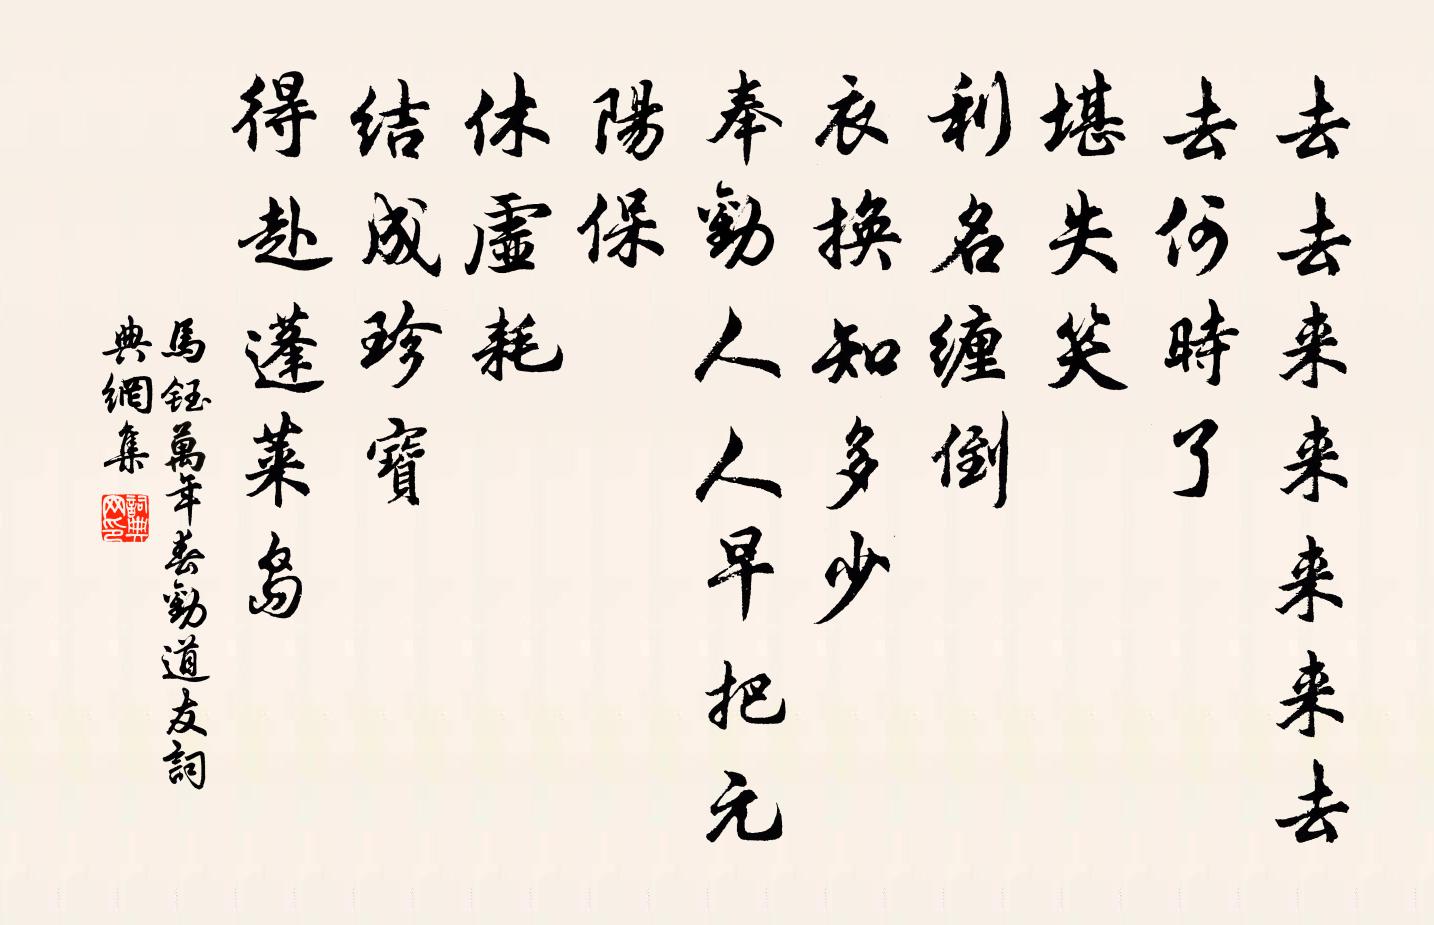 去去来来来来去
去何時了
堪失笑
利名缠倒
衣換知多少
奉勸人人早把元
陽保
休虛耗
结成珍寶
得赴蓬萊島
馬鈺萬年春勸道友詞
典網集
詞典网印